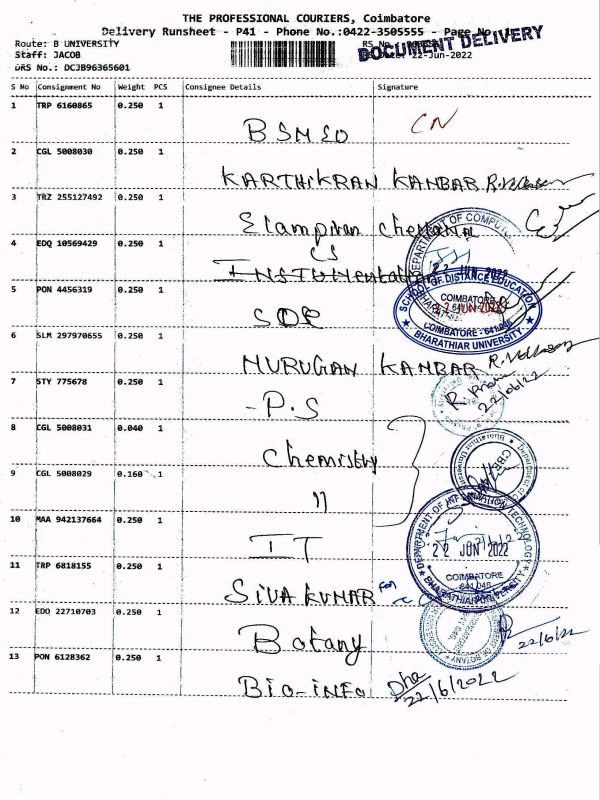 THE PROFESSIONAL COURIERS, Coimbatore
Delivery Runsheet - P41 - Phone No.:0422-3505555 - Page No
DOCUMENT DELIVERY
Route: B UNIVERSITY
Staff: JACOB
22-Jun-2022
DRS No.: DCJB96365601
S No Consignment No Weight PCS Consignee Details Signature
1 TRP 6160865 0.250 1
CN
2 CGL 5008030 0.250 1
KARTHIKRAN KANBAR
3 TRZ 255127492 0.250 1
DEPARTMENT OF
4 EDQ 10569429 0.250 1
CS
22 JUN 2022
SCHOOL OF DISTANCE EDUCATION
5 PON 4456319 0.250 1
COIMBATORE
22 JUN 2022
SDE
COIMBATORE - 641 046
BHARATHIAR UNIVERSITY
6 SLM 297970655 0.250 1
MURUGAN KANBAR
7 STY 775678 0.250 1
22/06/22
-P.S
8 CGL 5008031 0.040 1
Chemistry
9 CGL 5008029 0.160 1
"
10 MAA 942137664 0.250 1
DEPARTMENT OF INFORMATION TECHNOLOGY
IT
22 JUN 2022
11 TRP 6818155 0.250 1
COIMBATORE
641 046
SIVA KUMAR for
12 EDQ 22710703 0.250 1
Botany
22/6/22
13 PON 6128362 0.250 1
BIO-INFO
22/6/2022